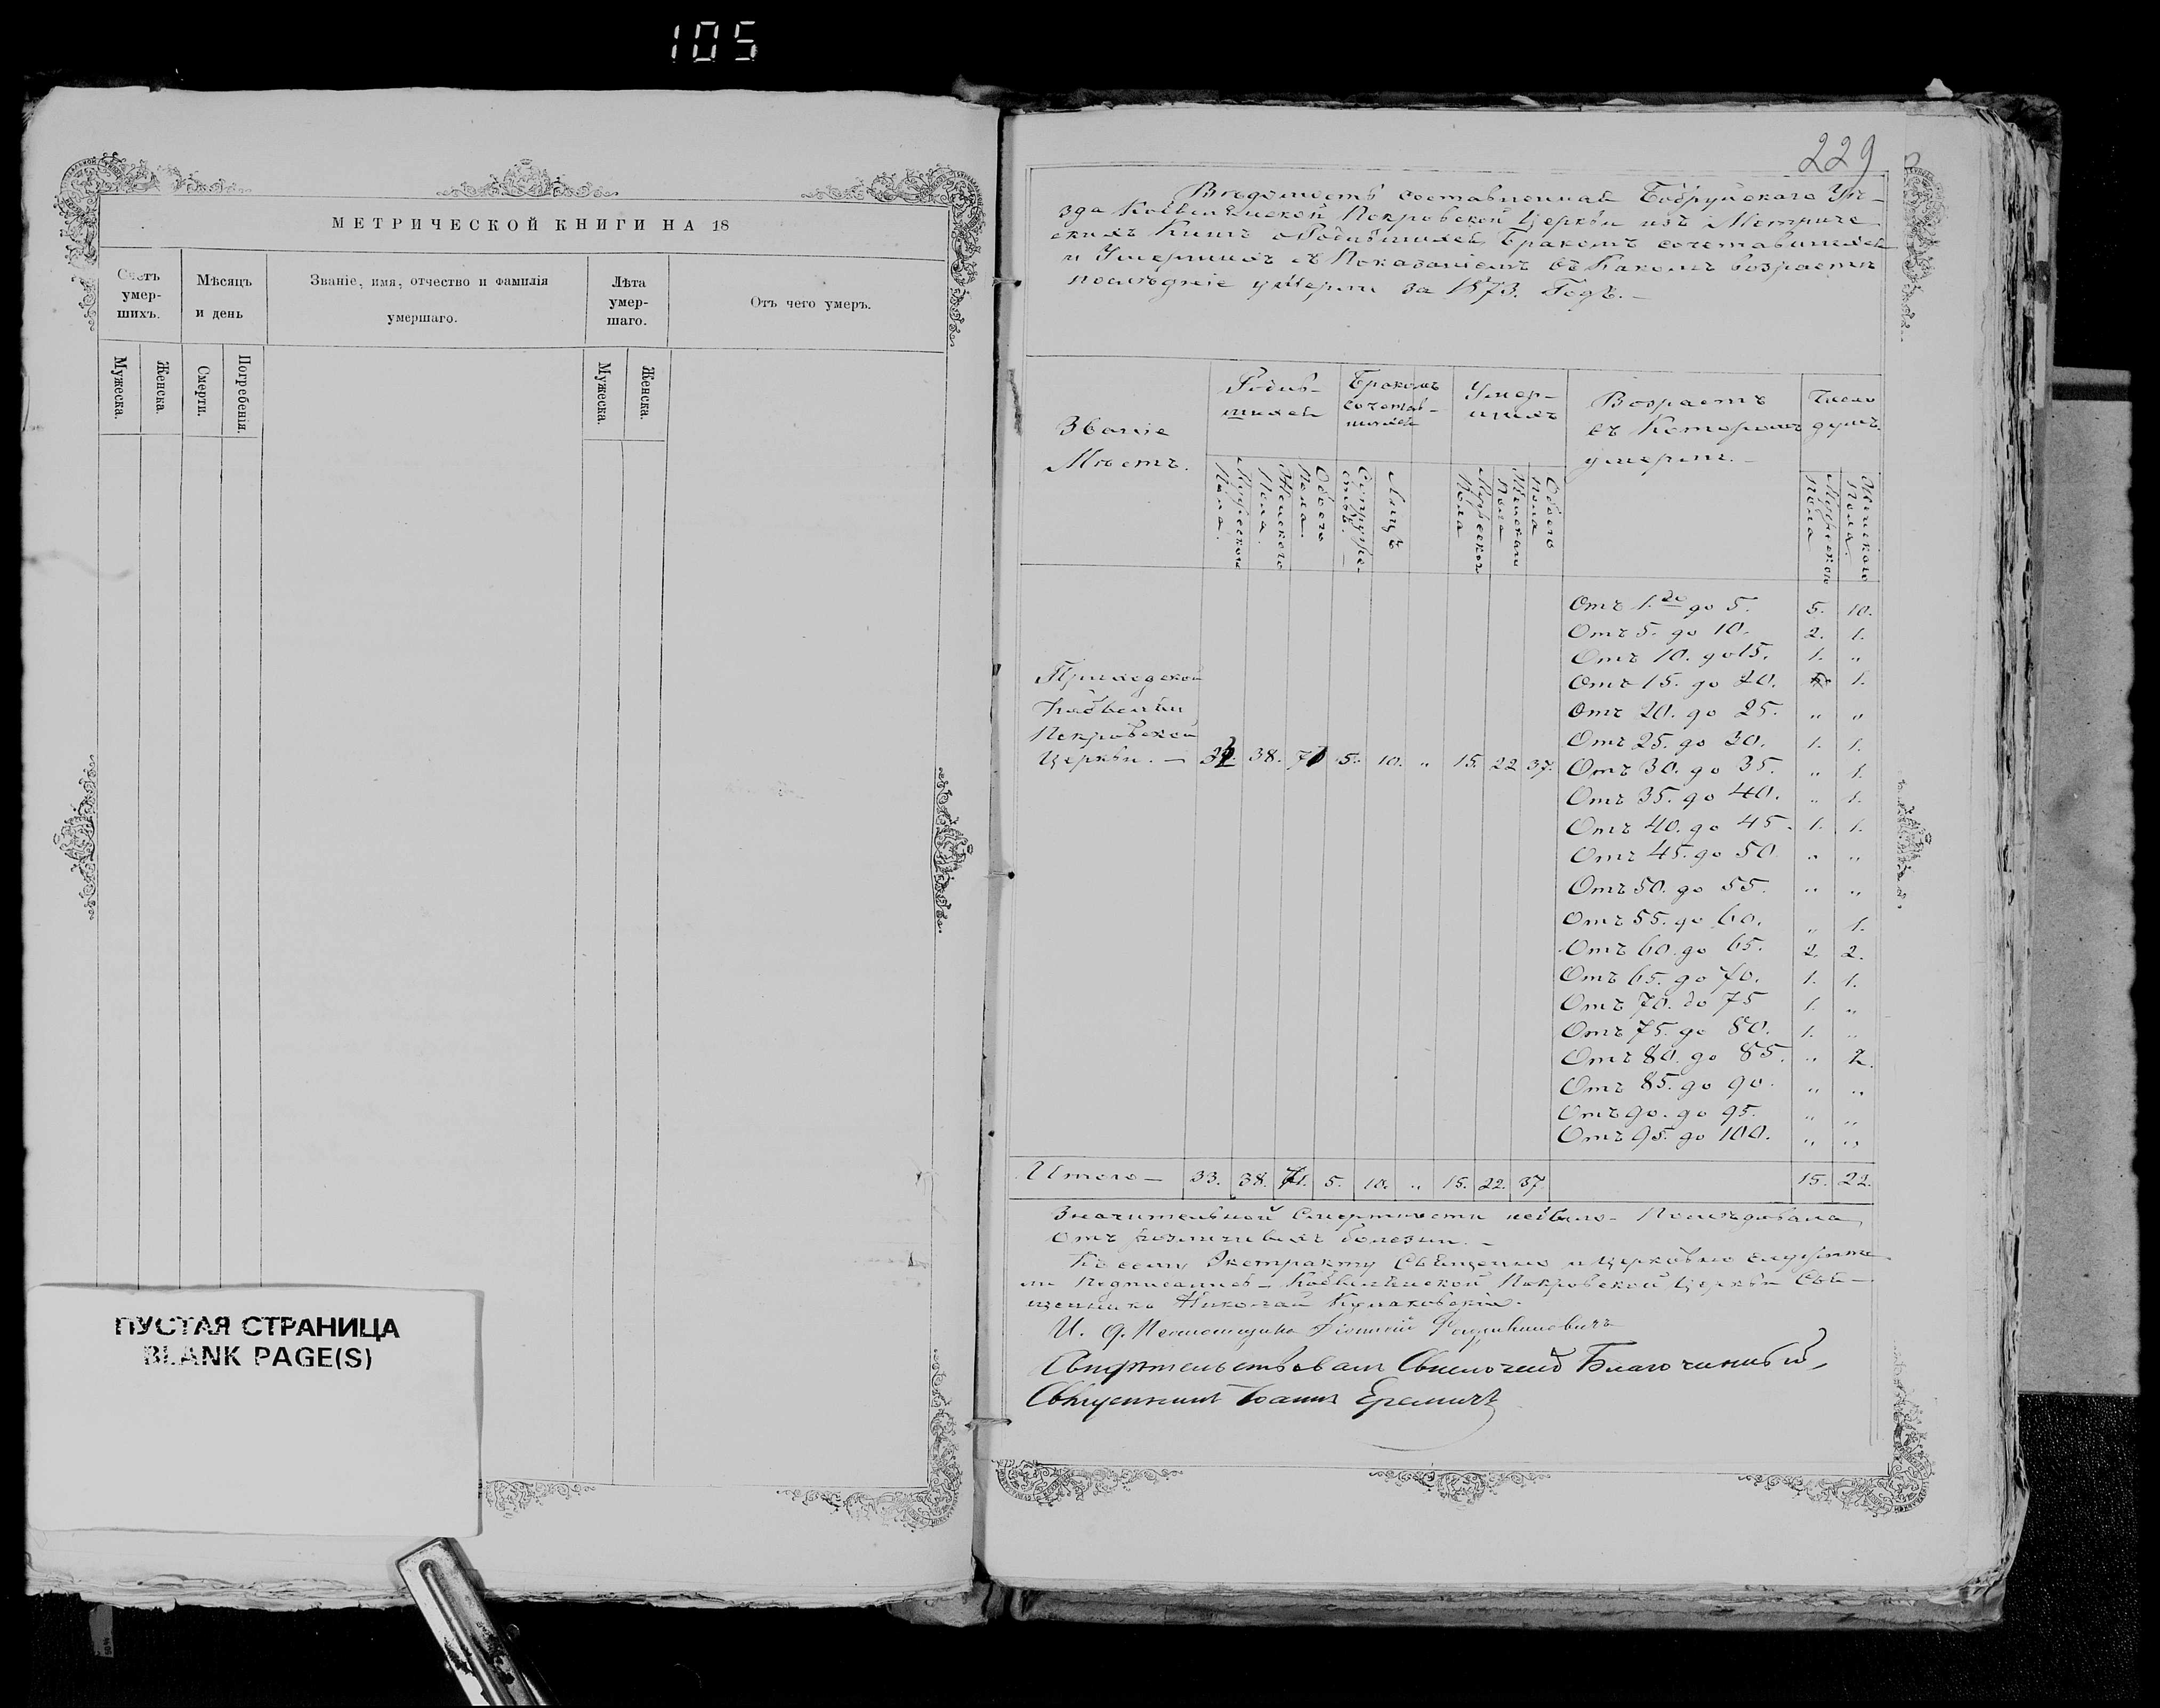 105
МЕТРИЧЕСКОЙ КНИГИ НА 18
Счетъ умер- шихъ.
Мѣсяцъ и день
Званіе, имя, отчество и фамилія умершаго.
Лѣта умер- шаго.
Отъ чего умеръ.
Мужеска.
Женска.
Смерти.
Погребенія.
Мужеска.
Женска.
ПУСТАЯ СТРАНИЦА
BLANK PAGE(S)
229
Вѣдомость составленная Бобруйскаго Уѣ-
зда Покровской Церкви изъ Метриче
скихъ Книгъ о Родившихся, Бракомъ сочетавшихся
и Умершихъ съ Показаніемъ въ Какомъ возрастѣ
послѣдніе умерли за 1873. Годъ. -
Званіе
Мѣстъ.
Родив-
шихся
Бракомъ
сочетав-
шихся
Умер-
шихъ
Возрастъ
въ Которомъ
умерли. -
Число
душъ.
Мужескаго Пола.
Женскаго Пола.
Обоего Пола
Супруже- ствъ. -
Лицъ
Мужеского Пола
Женскаго Пола
Обоего Пола
Мужескаго Пола
Женскаго Пола.
Отъ 1.го до 5. 5. 10.
Отъ 5. до 10. 2. 1.
Отъ 10. до 15. 1. „
Отъ 15. до 20. 1.
Отъ 20. до 25. „ „
Отъ 25. до 30. 1. 1.
Отъ 30. до 35. „ 1.
Отъ 35. до 40. „ 1.
Отъ 40. до 45. 1. 1.
Отъ 45. до 50 „ „
Отъ 50. до 55. „ „
Отъ 55. до 60. „ 1.
Отъ 60. до 65. 2. 2.
Отъ 65. до 70. 1. 1.
Отъ 70. до 75 1. „
Отъ 75. до 80. 1. „
Отъ 80. до 85. „ 2.
Отъ 85. до 90. „ „
Отъ 90. до 95. „ „
Отъ 95. до 100. „ „
Приходской
Покровской
Церкви. - 38. 71 5. 10. „ 15. 22 37.
Итого - 33. 38. 71. 5. 10. „ 15. 22. 37 15. 22.
Значительной Смертности небыло - Послѣдовала
отъ различныхъ болезни. -
Къ сему Экстракту Священно и церковно служите
ли Подписались - Покровской Церкви Свя-
щенникъ Николай
И. д. Псаломщика
Свидѣтельствовалъ Благочинный,
Священникъ Іоаннъ Еремичъ